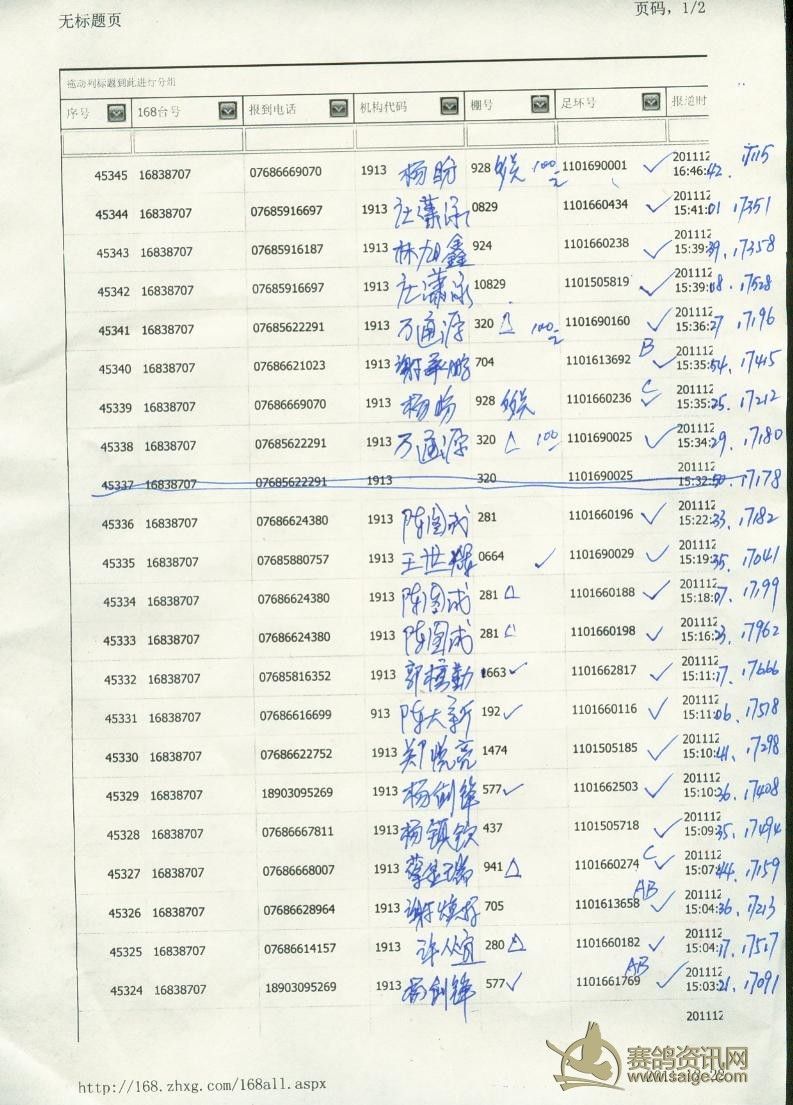 无标题页
页码，1/2
拖动列标题到此进行分组
序号 168台号 报到电话 机构代码 棚号 足环号 报道时
45345 16838707 07686669070 1913 杨盼 928 100 1101690001 201112 16:46:42. 17115
45344 16838707 07685916697 1913 庄潇泳 0829 1101660434 201112 15:41:01 17351
45343 16838707 07685916187 1913 林旭鑫 924 1101660238 201112 15:39:39. 17358
45342 16838707 07685916697 1913 庄潇泳 10829 1101505819 201112 15:39:08. 17528
45341 16838707 07685622291 1913 万通源 320 △ 100 1101690160 201112 15:36:27 17196
45340 16838707 07686621023 1913 704 1101613692 B 201112 15:35:54. 17415
45339 16838707 07686669070 1913 杨盼 928 1101660236 C 201112 15:35:25. 17212
45338 16838707 07685622291 1913 万通源 320 △ 100 1101690025 201112 15:34:29. 17180
45337 16838707 07685622291 1913 320 1101690025 201112 15:32:50. 17178
45336 16838707 07686624380 1913 281 1101660196 201112 15:22:33. 17182
45335 16838707 07685880757 1913 王世 0664 1101690029 201112 15:19:35. 17041
45334 16838707 07686624380 1913 281 △ 1101660188 201112 15:18:07. 17199
45333 16838707 07686624380 1913 281 △ 1101660198 201112 15:16:23. 17962
45332 16838707 07685816352 1913 1663 1101662817 201112 15:11:17. 17666
45331 16838707 07686616699 913 陈大新 192 1101660116 201112 15:11:06. 17518
45330 16838707 07686622752 1913 郑悦亮 1474 1101505185 201112 15:10:41. 17298
45329 16838707 18903095269 1913 杨创锋 577 1101662503 201112 15:10:36. 17408
45328 16838707 07686667811 1913 杨镇钦 437 1101505718 201112 15:09:35. 17494
45327 16838707 07686668007 1913 941 △ 1101660274 C 201112 15:07:44. 17159
45326 16838707 07686628964 1913 705 1101613658 AB 201112 15:04:36. 17213
45325 16838707 07686614157 1913 280 △ 1101660182 201112 15:04:17. 17517
45324 16838707 18903095269 1913 杨创锋 577 1101661769 AB 201112 15:03:21. 17091
201112
http://168.zhxg.com/168all.aspx
赛鸽资讯网
www.saige.com